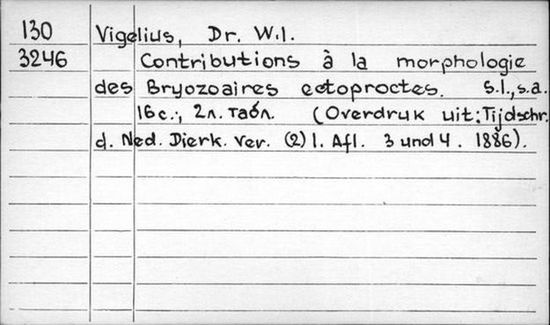 130 Vigelius, Dr. W.I.
3246 Contributions à la morphologie
des Bryozoaires ectoproctes. s.l., s.a.
16 с., 2 л. табл. (Overdruk uit: Tijdschr.
d. Ned. Dierk. Ver. (2) 1. Afl. 3 und 4. 1886).